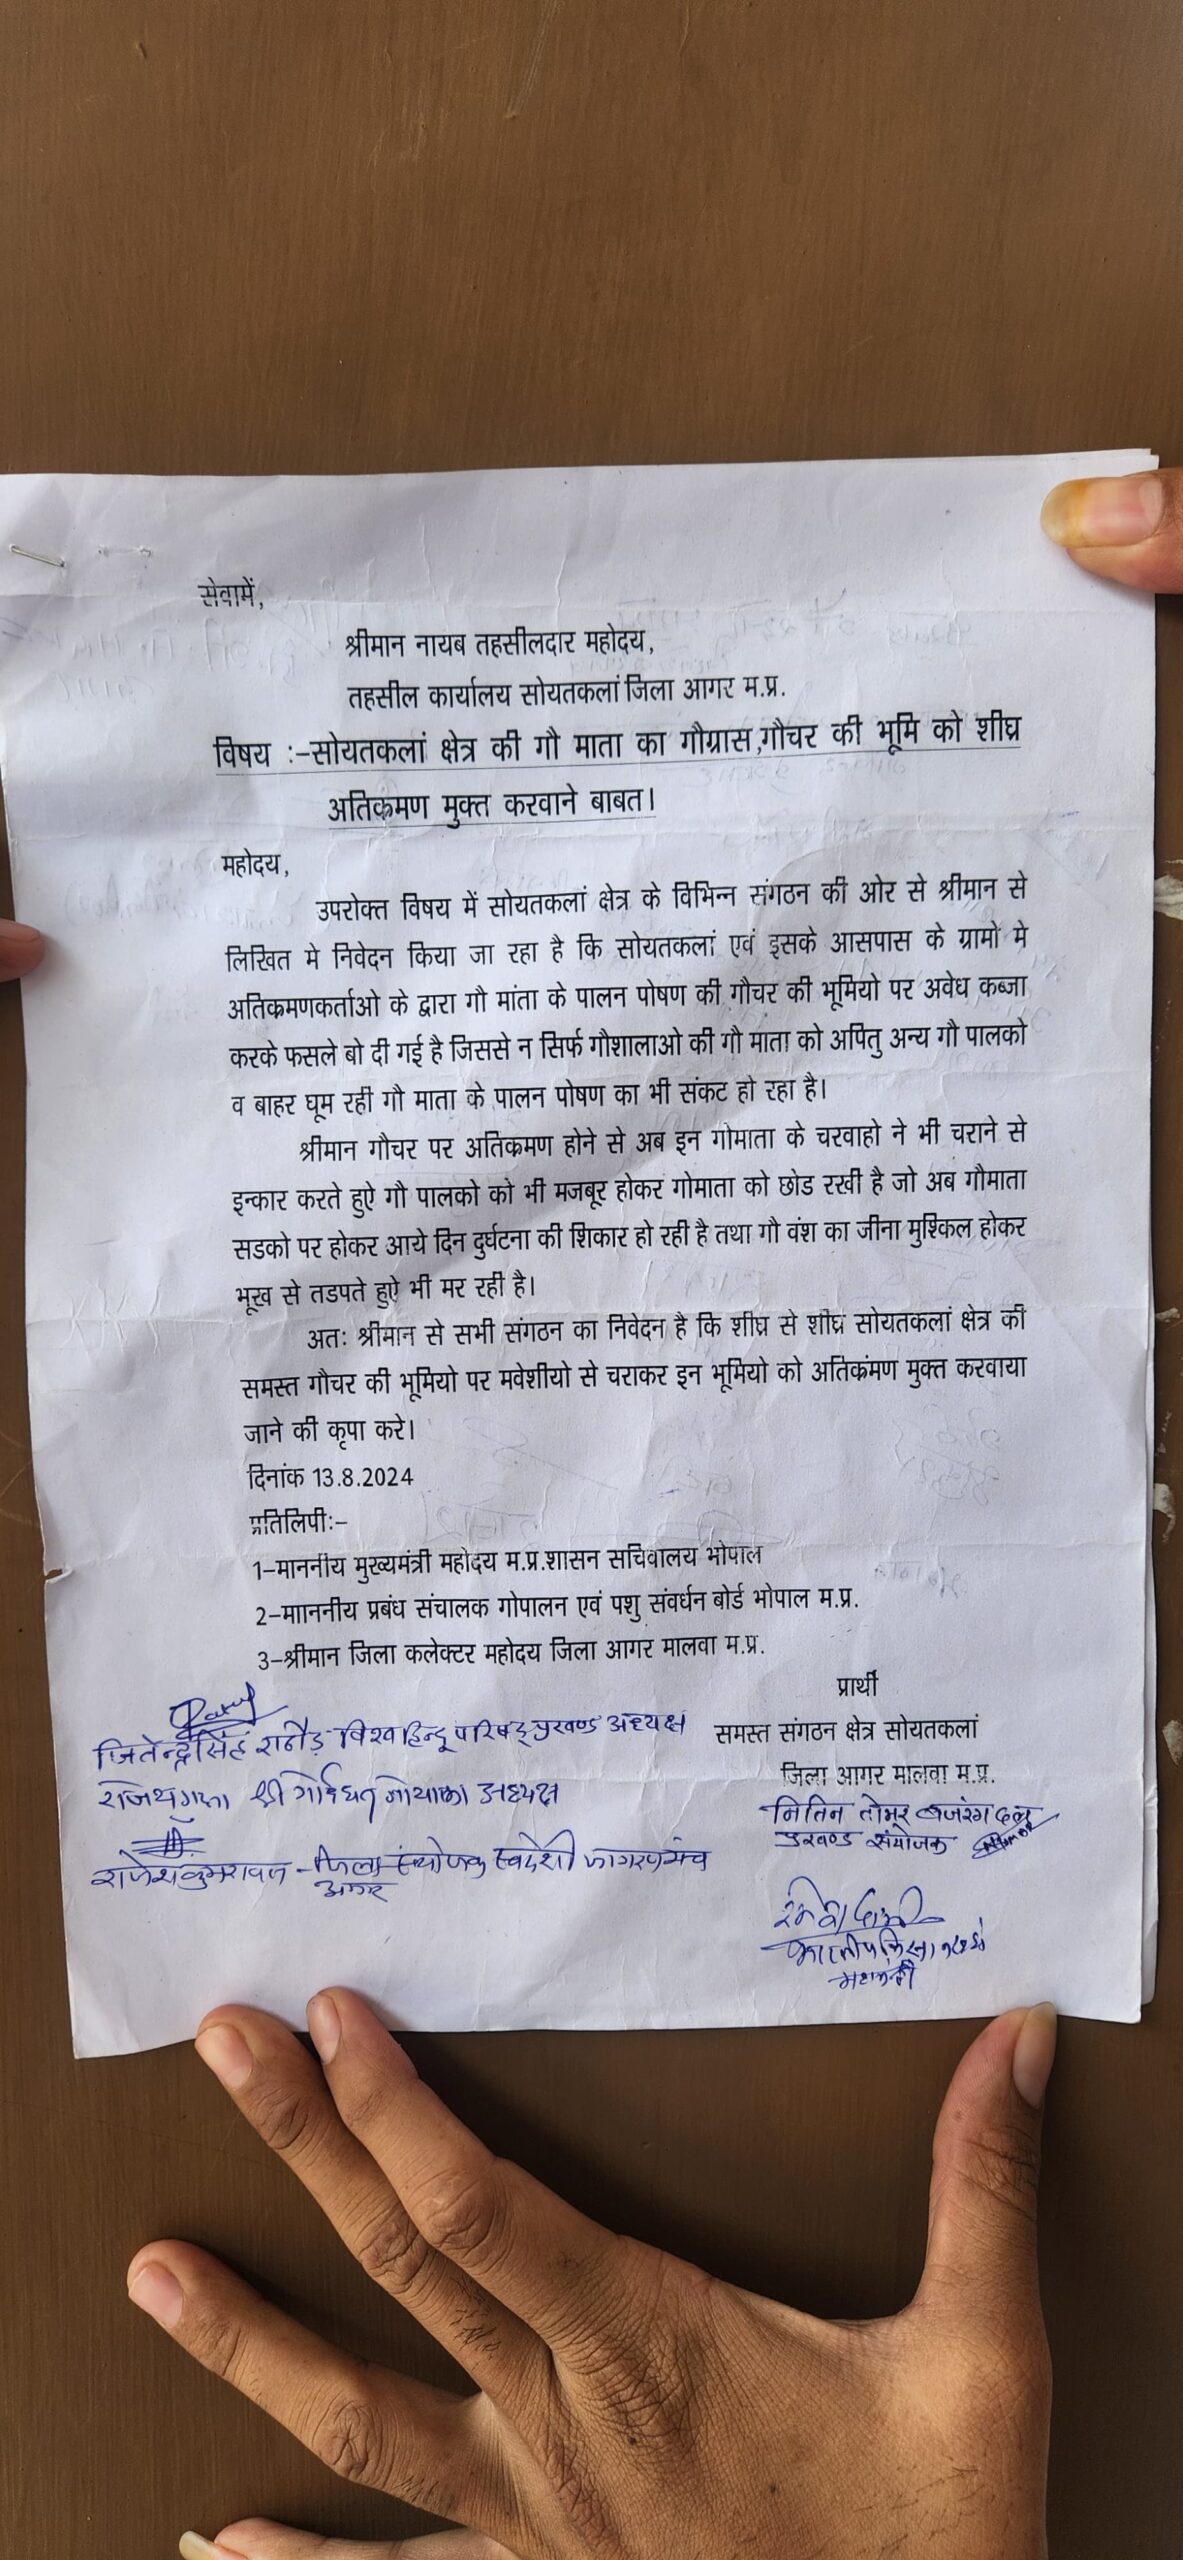 सेवामें,
श्रीमान नायब तहसीलदार महोदय,
तहसील कार्यालय सोयतकलां जिला आगर म.प्र.
विषय :–सोयतकलां क्षेत्र की गौ माता का गौग्रास,गौचर की भूमि को शीघ्र
अतिक्रमण मुक्त करवाने बाबत।
महोदय,
उपरोक्त विषय में सोयतकलां क्षेत्र के विभिन्न संगठन की ओर से श्रीमान से
लिखित मे निवेदन किया जा रहा है कि सोयतकलां एवं इसके आसपास के ग्रामो मे
अतिक्रमणकर्ताओ के द्वारा गौ मांता के पालन पोषण की गौचर की भूमियो पर अवेध कब्जा
करके फसले बो दी गई है जिससे न सिर्फ गौशालाओ की गौ माता को अपितु अन्य गौ पालको
व बाहर घूम रही गौ माता के पालन पोषण का भी संकट हो रहा है।
श्रीमान गौचर पर अतिक्रमण होने से अब इन गोमाता के चरवाहो ने भी चराने से
इन्कार करते हुऐ गौ पालको को भी मजबूर होकर गोमाता को छोड रखी है जो अब गौमाता
सडको पर होकर आये दिन दुर्घटना की शिकार हो रही है तथा गौ वंश का जीना मुश्किल होकर
भूख से तडपते हुऐ भी मर रही है।
अतः श्रीमान से सभी संगठन का निवेदन है कि शीघ्र से शीघ्र सोयतकलां क्षेत्र की
समस्त गौचर की भूमियो पर मवेशीयो से चराकर इन भूमियो को अतिक्रंमण मुक्त करवाया
जाने की कृपा करे।
दिनांक 13.8.2024
प्रतिलिपीः–
1–माननीय मुख्यमंत्री महोदय म.प्र.शासन सचिवालय भोपाल
2–मााननीय प्रबंध संचालक गोपालन एवं पशु संवर्धन बोर्ड भोपाल म.प्र.
3–श्रीमान जिला कलेक्टर महोदय जिला आगर मालवा म.प्र.
प्रार्थी
समस्त संगठन क्षेत्र सोयतकलां
जिला आगर मालवा म.प्र.
जितेन्द्रसिंह राठौड़ विश्व हिन्दू परिषद् प्रखण्ड अध्यक्ष
श्री गोर्वधन गोशाला अध्यक्ष
राजेश कुमरावत – जिला संयोजक स्वदेशी जागरण मंच
आगर
नितिन तोमर बजरंग दल
प्रखण्ड संयोजक